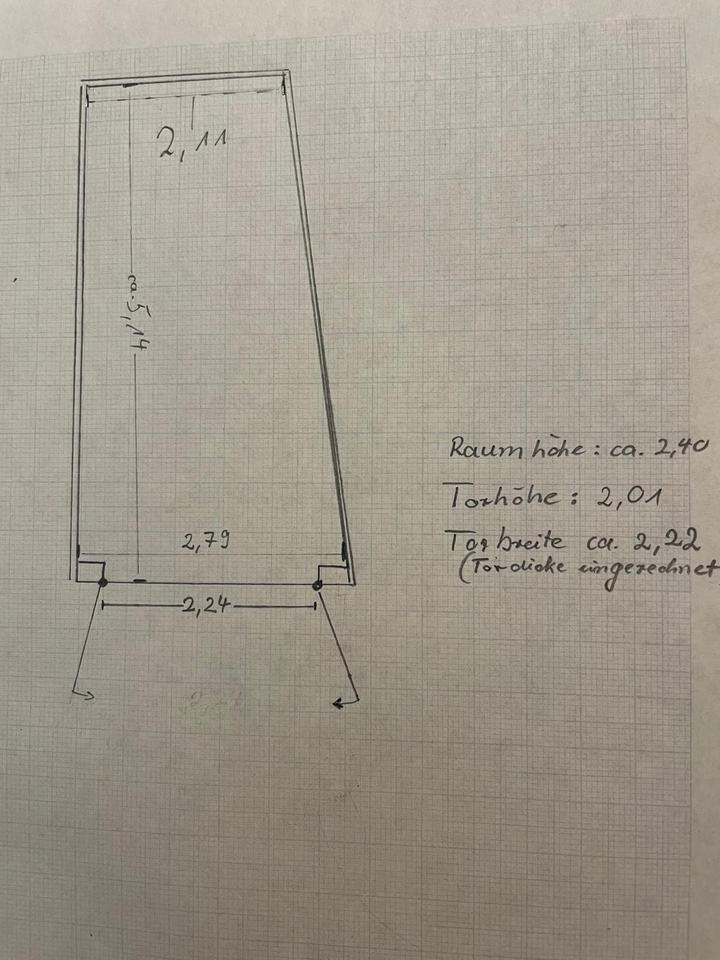 2,11
ca. 5,14
2,79
2,24
Raumhöhe: ca. 2,40
Torhöhe: 2,01
Torbreite ca. 2,22
(Tordicke eingerechnet